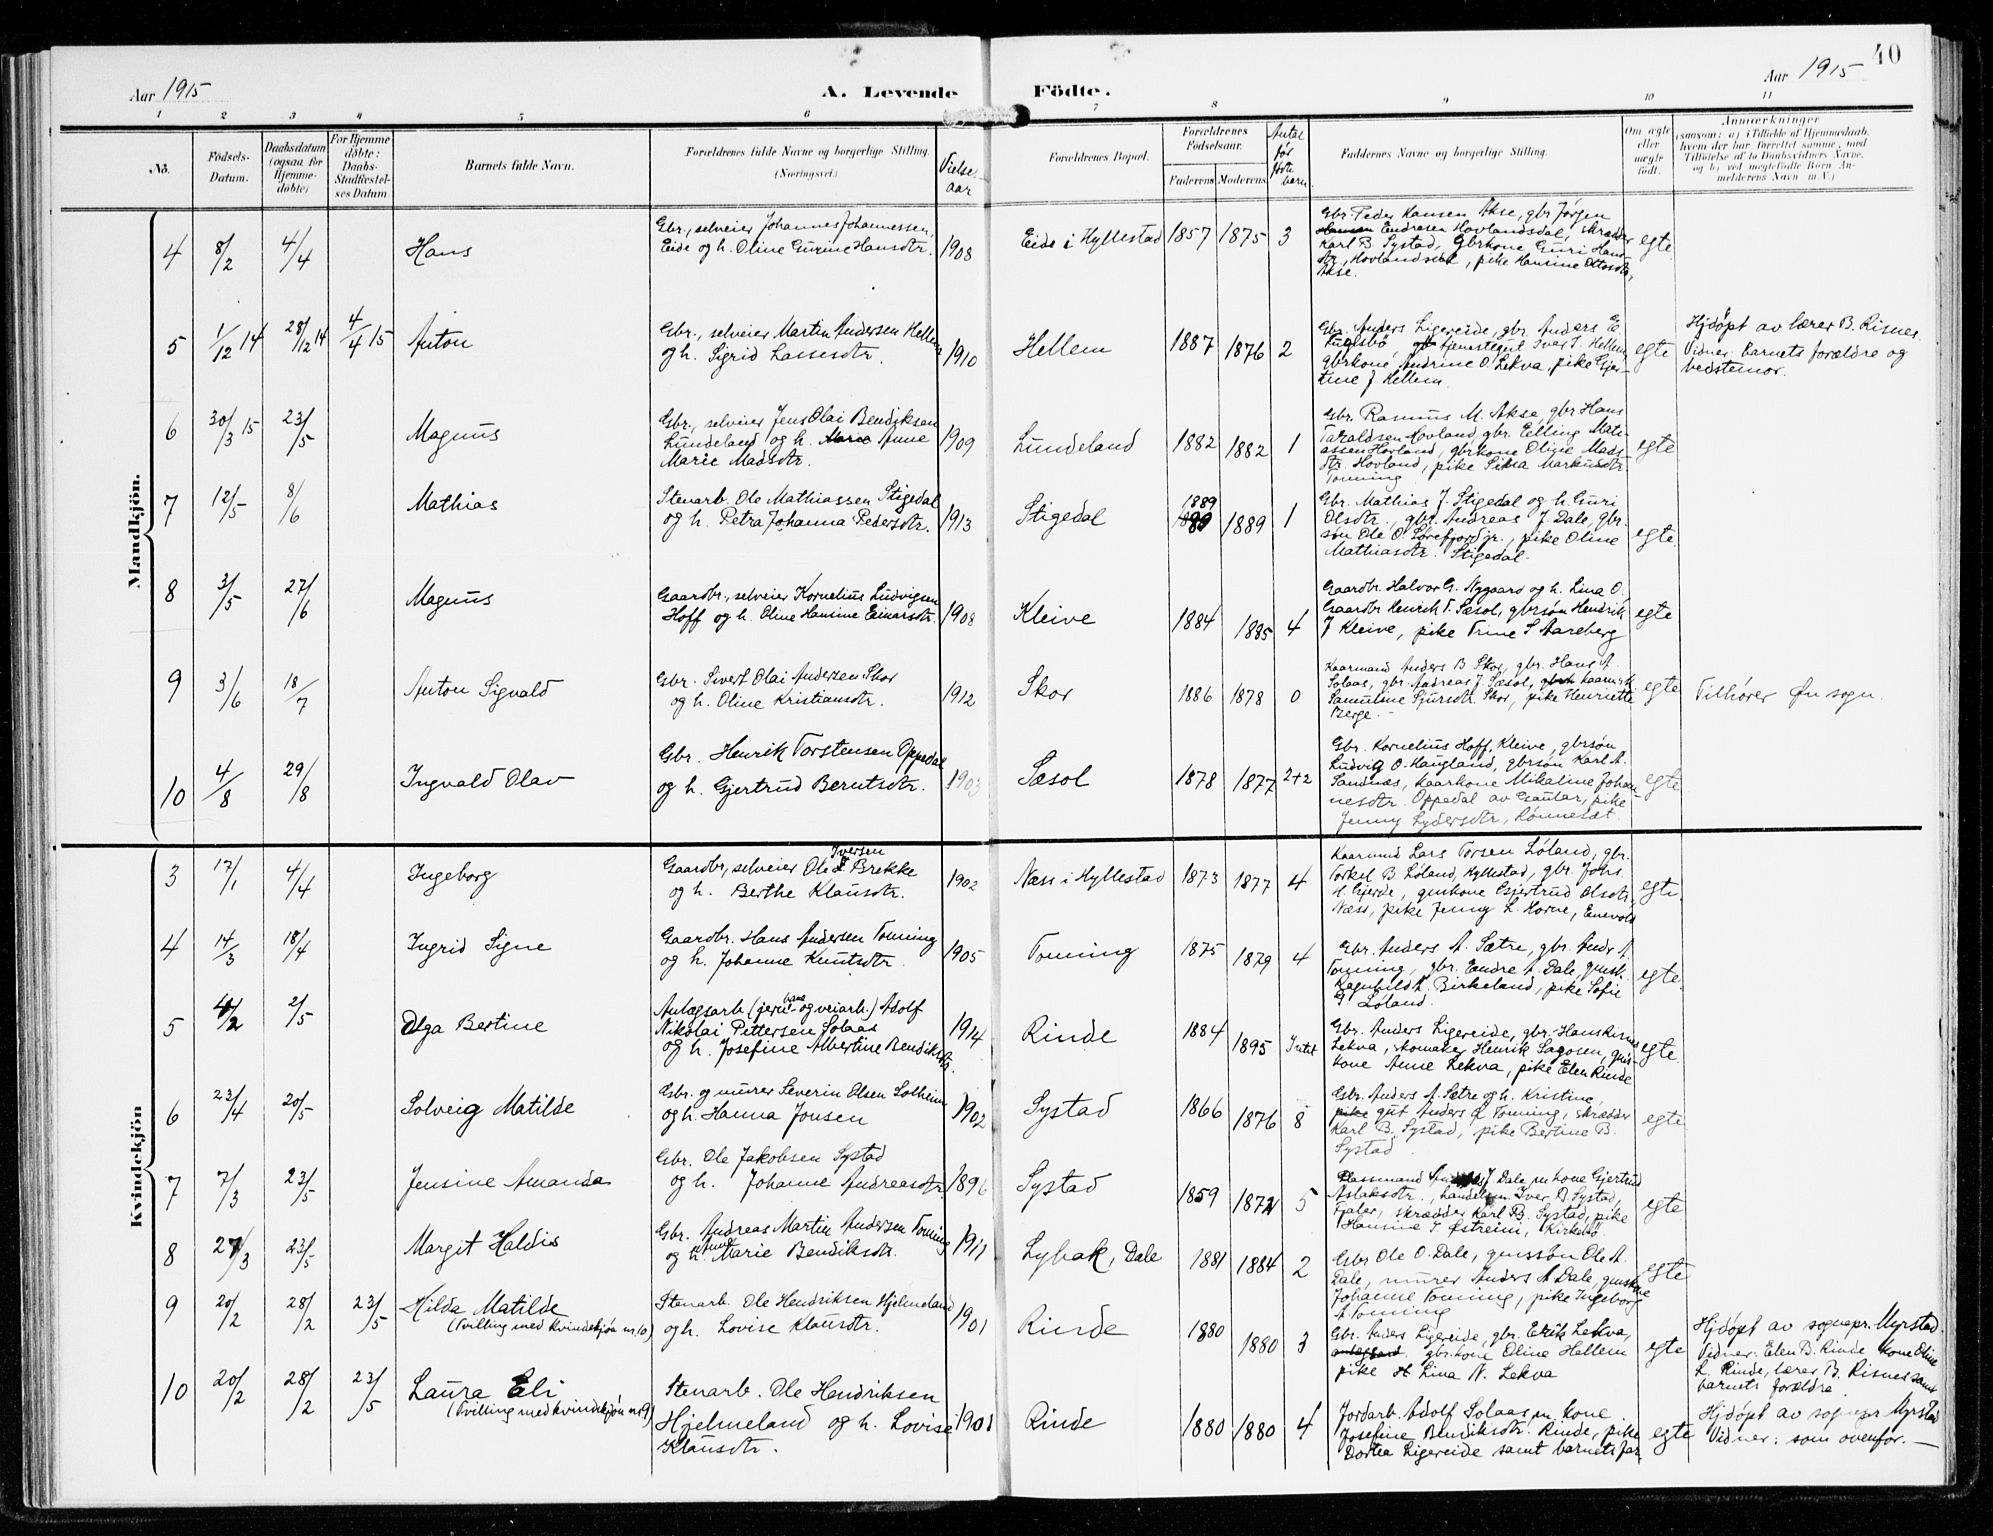 40
Aar 1915
A. Levende Födte.
Aar 1915
1 2 3 4 5 6 7 8 9 10 11
No.
Födsels-
Datum.
Daabsdatum
(ogsaa for
Hjemme-
döbte)
For Hjemme
döbte:
Daabs-
Stadfæstel-
ses Datum.
Barnets fulde Navn.
Forældrenes fulde Navne og borgerlige Stilling.
(Næringsvei.)
Vielses
aar
Forældrenes Bopæl.
Forældrenes
Födselsaar.
Faderens Moderens
Antal
før
fødte
barn.
Faddernes Navne og borgerlige Stilling.
Om ægte
eller
uægte
födt.
Anmærkninger
(saasom: a) i Tilfælde af Hjemmedaab,
hvem der har forrettet samme, med
Tilföielse af to Daabsvidners Navne,
og b) ved uægtefödte Börn An-
melderens Navn m. V.)
Mandkjön.
4 8/2 4/4 Hans
Gbr., selveier Johannes Johannessen,
Eide og h. Oline Gurine Hansdtr. 1908
Eide i Hyllestad 1857 1875 3
Gbr. Peder Hansen Akse, gbr Jørgen
Hansen Endresen Hovlandsdal, skrædder
Karl B. Systad, Gbrkone Guri Hans
dtr., , pike Hansine
Akse.
egte
5 1/12 14 28/12 14 4/4 15 Anton
Gbr., selveier Martin Andersen Hellem
og h. Sigrid Lassesdtr. 1910
Hellem 1887 1876 2
Gbr. Anders Ligereide, gbr. Anders E.
Fuglsbø, tjenestegut Iver J. Hellem,
gbrkone Andrine O. Lekva, pike Gjer-
tine J. Hellem
egte
Hjdøpt av lærer B. Risnes.
Vidner: barnets forældre og
bedstemor.
6 30/3 15 23/5 Magnus
Gbr., selveier Jens Olai Bendiksen
Lundeland og h. Marie Anne
Marie Madsdtr. 1909
Lundeland 1882 1882 1
Gbr. Rasmus M. Akse, gbr Hans
Taraldsen Hovland, gbr. Elling Mati-
assen Hovland, gbrkone Oline Mads-
dtr. Hovland, pike Markusdtr.
Tonning
egte
7 12/5 8/6 Mathias
Stenarb. Ole Mathiassen Stigedal
og h. Petra Johanna Pedersdtr. 1913
Stigedal 1889 1889 1
Gbr. Mathias J. Stigedal og h. Guri
Olsdtr., gbr. Andreas J. Dale, gbr.
søn Ole O. Sørefjord jr., pike Oline
Mathiasdtr. Stigedal.
egte.
8 3/5 27/6 Magnus
Gaardbr., selveier Kornelius Ludvigsen
Hoff og h. Oline Hansine Einarsdtr. 1908
Kleive 1884 1885 4
Gaardbr. Halvor G. Nygaard og h. Lina O.
Gaardbr Henrik T. Sæsol, gbrsøn Hendrik
J Kleive, pike Trine S Aareberg
egte
9 3/6 18/7 Anton Sigvald
Gbr. Sivert Olai Andersen Skor
og h. Oline Kristiansdtr. 1912
Skor 1886 1878 0
Kaarmand Anders B Skor, gbr. Hans A.
Solaas, gbr. Andreas J. Sæsol,
Samuline Sjursdtr. Skor, pike Henriette
Berge.
egte
Tilhører Øn sogn.
10 4/8 29/8 Ingvald Olav
Gbr. Henrik Torstensen Oppedal
og h. Gjertrud Berntsdtr. 1903
Sæsol 1878 1877 2+2
Gbr. Kornelius Hoff, Kleive, gbrsøn
Ludvig O. Haugland, gbrsøn Karl A.
Sandnæs, kaarkone Mikaline Johan-
nesdtr. Oppedal av Gaular, pike
Jenny Lydersdtr, Rønneset.
egte
Kvindekjön
3 17/1 4/4 Ingeborg
Iversen
Gaardbr, selveier Ole Brekke
og h. Berthe Klausdtr. 1902
Næss i Hyllestad 1873 1877 4
Kaarmand Lars Torsen Løland, gbr.
Torkel B Løland, Hyllestad, gbr. Johs.
H. Gjerde, gmskone Gjertrud Olsdtr.
Næss, pike Jenny L. Horne, Enevold
egte.
4 14/3 18/4 Ingrid Signe
Gaardbr. Hans Andersen Tonning
og h. Johanne Knutsdtr. 1905
Tonning 1875 1879 4
Gbr. Anders A. Sætre, gbr. Andr A.
Tonning, gbr. Endre A. Dale, gmsk.
Ragnhild A. Birkeland, pike Sofie
G. Løland.
egte.
5 4/2 2/5 Olga Bertine
Anlægsarb (jernbane- og veiarb.) Adolf
Nikolai Pettersen Solaas
og h. Josefine Albertine Bendiksdtr. 1914
Rinde 1884 1895 Intet
Gbr. Anders Ligereide, gbr. Hans Rasmus
Lekva, skomaker Henrik Sagosen, gms-
kone Anne Lekva, pike Elen Rinde
egte.
6 23/4 20/5 Solveig Matilde
Gbr. og murer Severin Olsen Solheim
og h. Hanna Jonsen 1902
Systad 1866 1876 8
Gbr. Anders A. Sætre og h. Kristine,
pike gut Anders A Tonning, skrædder
Karl B. Systad, pike Bertine B.
Systad
egte
7 7/3 23/5 Jensine Amanda
Gbr. Ole Jakobsen Systad
og h. Johanne Andreasdtr 1896
Systad 1859 1872 5
J Dale, m kone Gjertrud
Aslaksdtr., handelsm. Iver B Systad,
Fjaler, skrædder Karl B. Systad, pike
Hansine I. Østreim, Kirkebø.
egte
8 27/3 23/5 Margit Haldis
Gbr. Andreas Martin Andersen Tonning
og h. Anne Marie Bendiksdtr. 1911
Lybak, Dale 1881 1884 2
Gbr Ole O. Dale, gmssøn Ole A.
Dale, murer Anders A Dale, gmskone
Johanne Tonning, pike Ingeborg
A Tonning
egte
9 20/2 28/2 23/5 Hilda Matilde
(Tvilling med kvindekjøn nr. 10)
Stenarb. Ole Hendriksen Hjelmeland
og h. Lovise Klausdtr. 1901
Rinde 1880 1880 3
Gbr. Anders Ligereide, gbr. Erik Lekva,
gbr. kone Oline Hellem
pike Lina N. Lekva
egte
Hjdøpt av sognepr. Myrstad.
Vidner: Elen B. Rinde kone Oline
L. Rinde, lærer B. Risnes samt
barnets forældre
10 20/2 28/2 23/5 Laura Eli
(Tvilling med kvindekjøn nr 9)
Stenarb. Ole Hendriksen
Hjelmeland og h. Lovise
Klausdtr. 1901
Rinde 1880 1880 4
Jordarb. Adolf Solaas m kone
Josefine Bendiksdtr. Rinde, pike
Dortea Ligereide samt barnets far
egte
Hjdøpt av sognepr Myrstad
Vidner: som ovenfor.